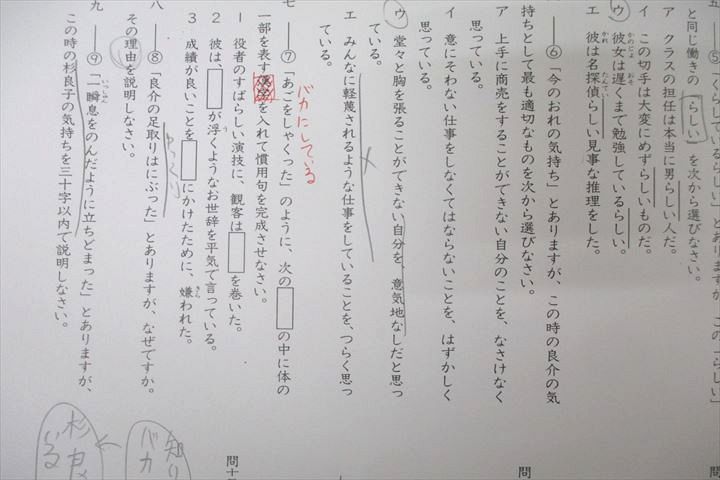 五 ⑤「くらしているらしい」とありますが、この「らしい」
と同じ働きの「らしい」を次から選びなさい。
ア クラスの担任は本当に男らしい人だ。
イ この切手は大変にめずらしいものだ。
ウ 彼女は遅くまで勉強しているらしい。
エ 彼は名探偵らしい見事な推理をした。
六 ――⑥「今のおれの気持ち」とありますが、この時の良介の気
持ちとして最も適切なものを次から選びなさい。
ア 上手に商売をすることができない自分のことを、なさけなく
思っている。
イ 意にそわない仕事をしなくてはならないことを、はずかしく
思っている。
ウ 堂々と胸を張ることができない自分を、意気地なしだと思っ
ている。
エ みんなに軽蔑されるような仕事をしていることを、つらく思っ
ている。
バカにしている
七 ――⑦「あごをしゃくった」のように、次の□の中に体の
一部を表す漢字を入れて慣用句を完成させなさい。
1 役者のすばらしい演技に、観客は□を巻いた。
2 彼は、□が浮くようなお世辞を平気で言っている。
3 成績が良いことを□にかけたために、嫌われた。
ゆっくり
八 ――⑧「良介の足取りはにぶった」とありますが、なぜですか。
その理由を説明しなさい。
九 ――⑨「一瞬息をのんだように立ちどまった」とありますが、
この時の杉良子の気持ちを三十字以内で説明しなさい。
知り
バカ
杉良
いる
問
問十